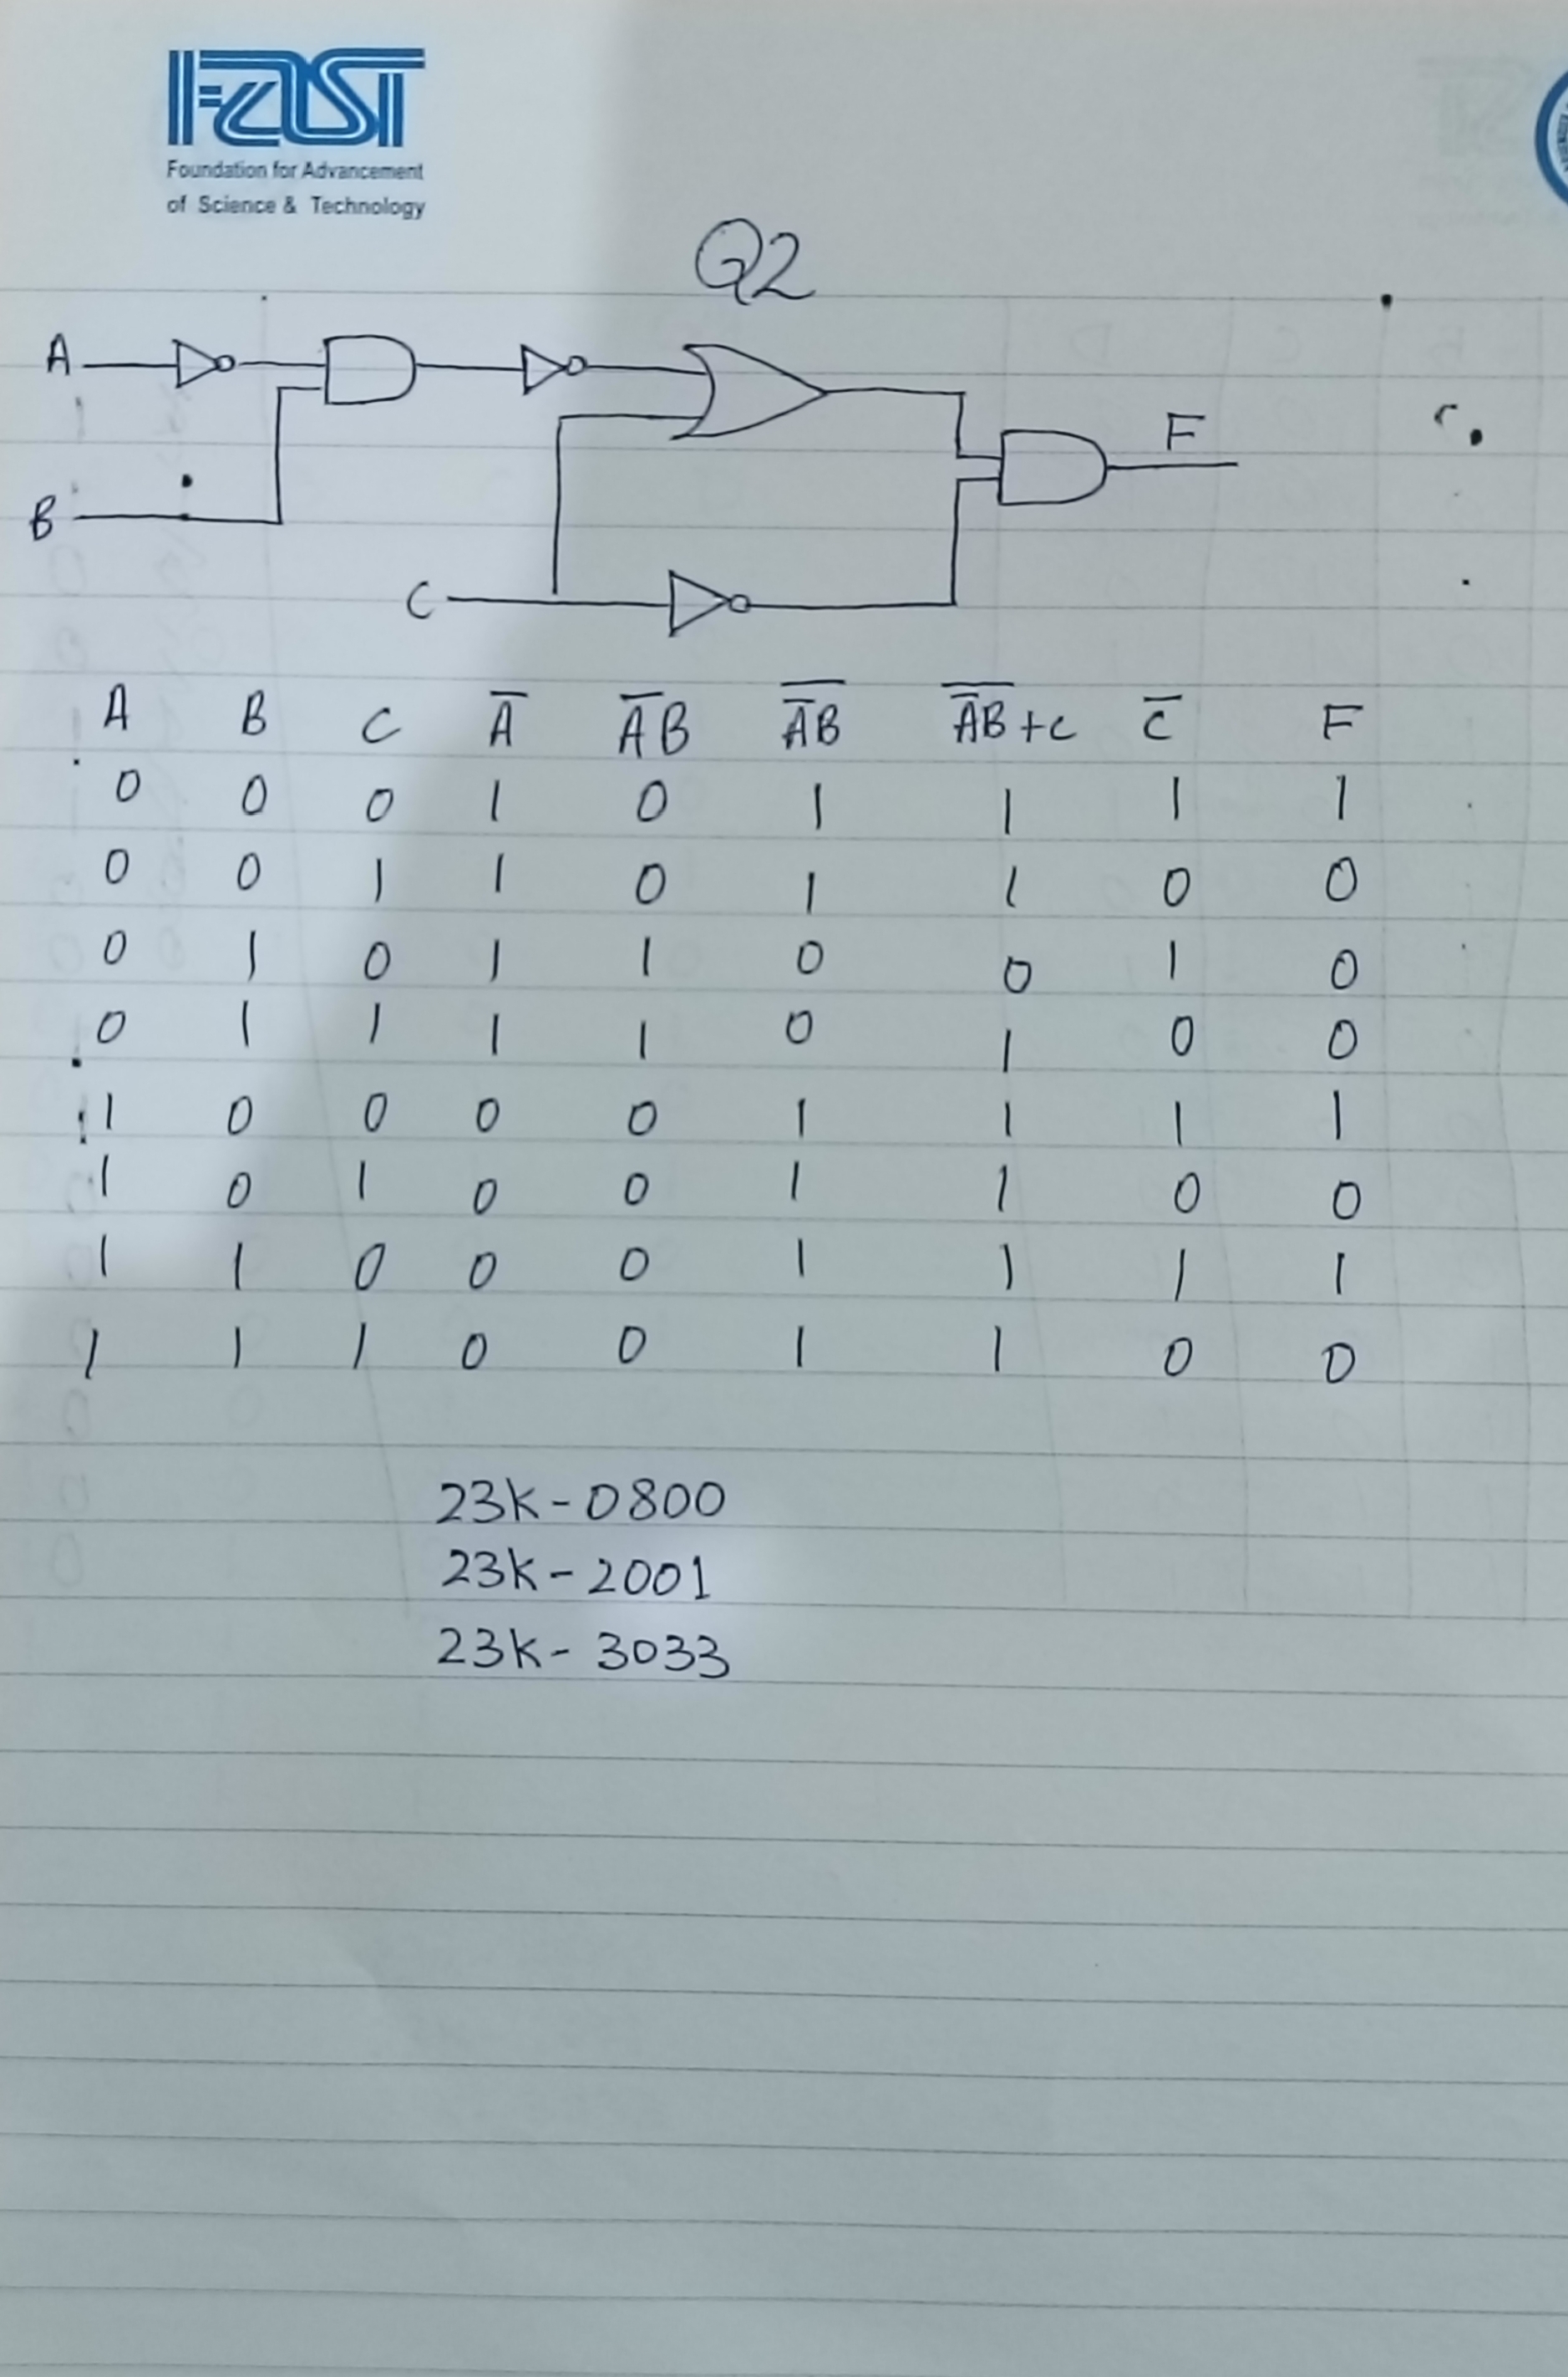 FAST
Foundation for Advancement
of Science & Technology
Q2
A
B
C
F
A B C A̅ A̅B \overline{A̅B} \overline{A̅B}+C C̅ F
0 0 0 1 0 1 1 1 1
0 0 1 1 0 1 1 0 0
0 1 0 1 1 0 0 1 0
0 1 1 1 1 0 1 0 0
1 0 0 0 0 1 1 1 1
1 0 1 0 0 1 1 0 0
1 1 0 0 0 1 1 1 1
1 1 1 0 0 1 1 0 0
23K-0800
23K-2001
23K-3033